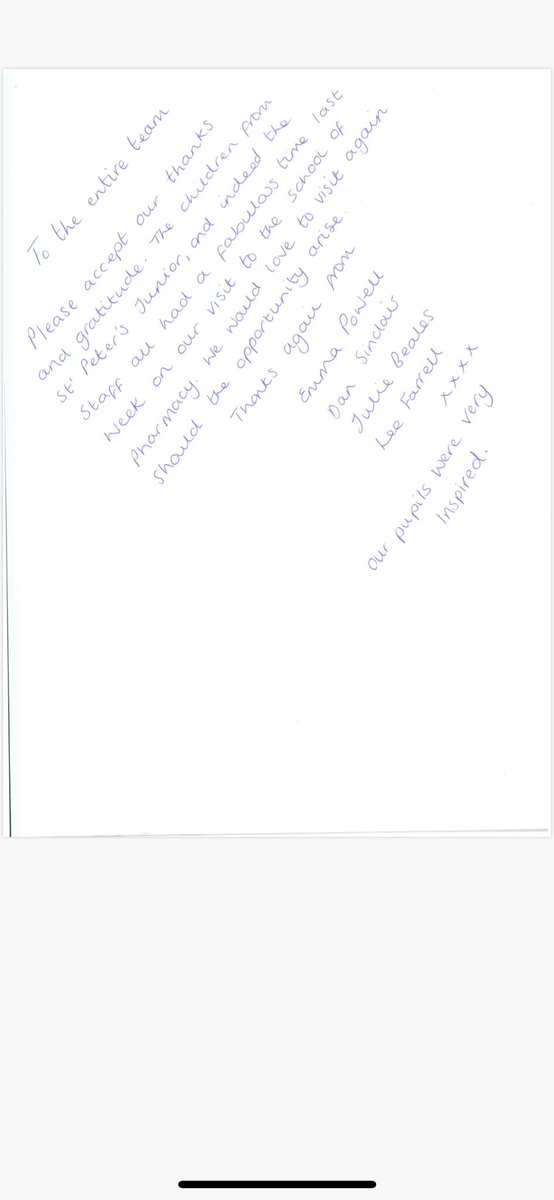 To the entire team
Please accept our thanks
and gratitude. The children from
St' Peter's Junior, and indeed the
Staff all had a fabulous time last
week on our visit to the school of
Pharmacy. We would love to visit again
should the opportunity arise.
Thanks again from
Emma Powell
Dan Sinclair
Julie Beales
Lee Farrell
xxxx
Our pupils were very
Inspired.